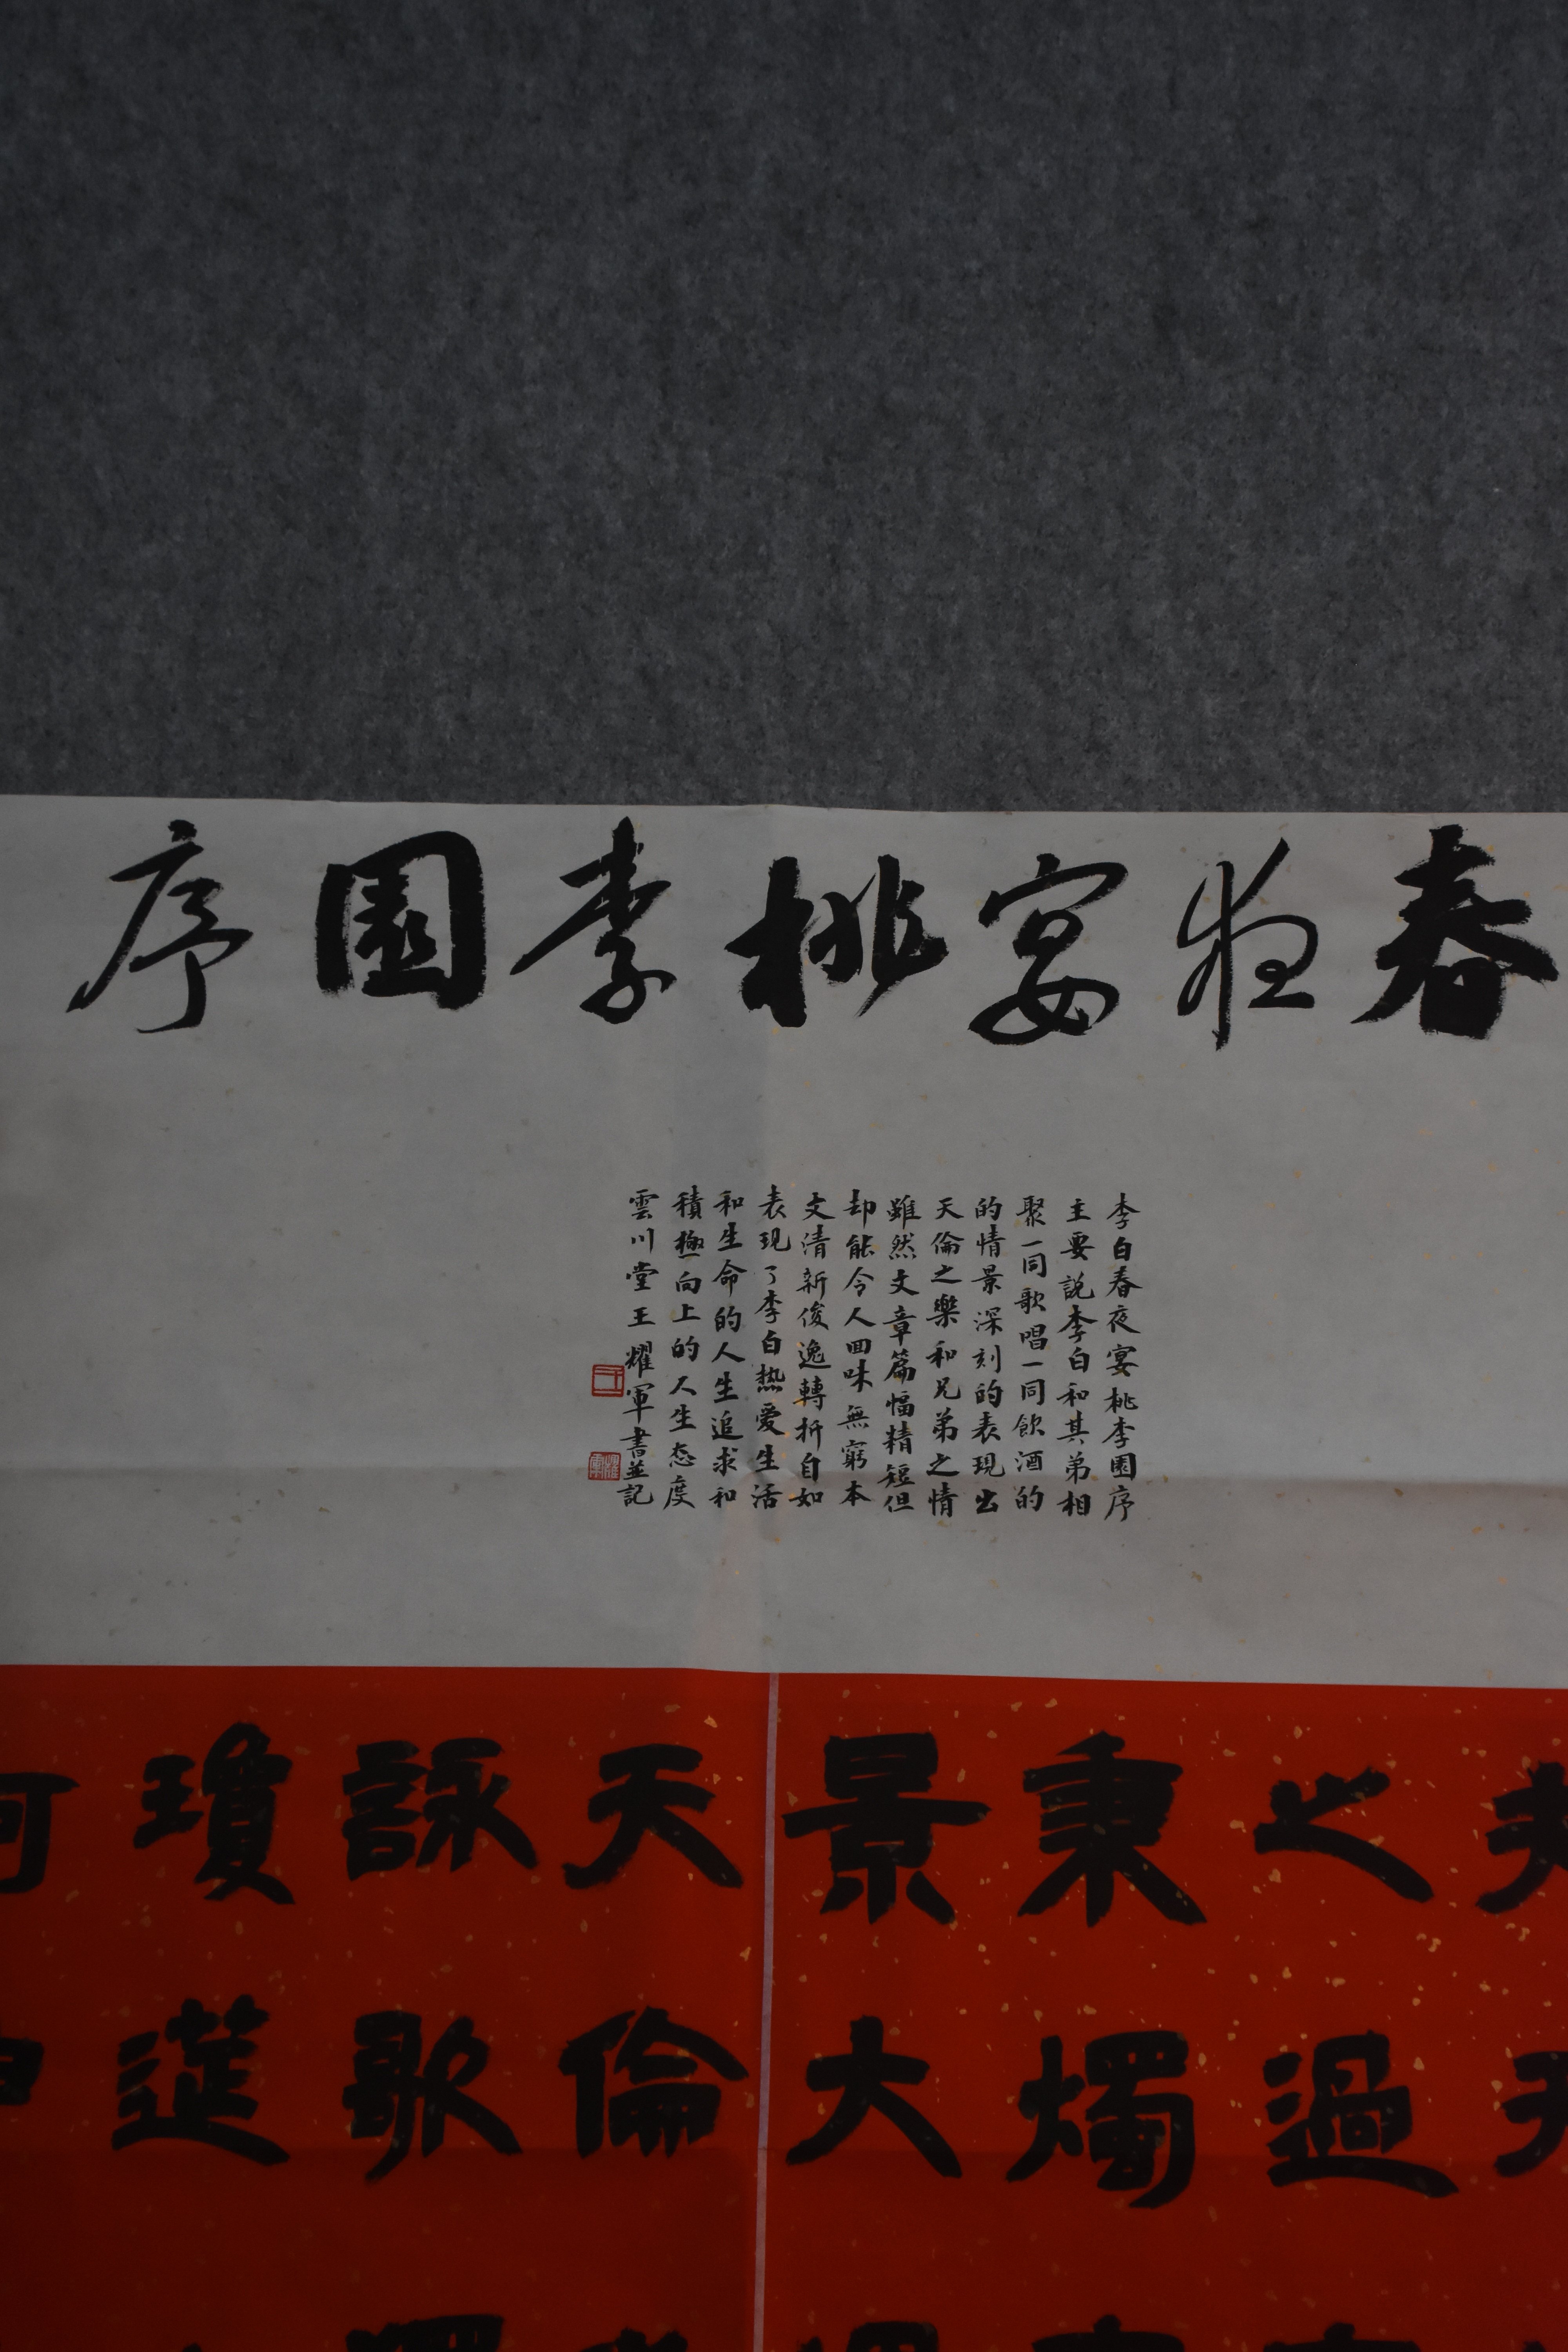 春夜宴桃李園序
李白春夜宴桃李園序
主要說李白和其弟相
聚一同歌唱一同飲酒的
的情景深刻的表現出
天倫之樂和兄弟之情
雖然文章篇幅精短但
却能令人回味無窮本
文清新俊逸轉折自如
表現了李白热爱生活
和生命的人生追求和
積極向上的人生态度
雲川堂王耀軍書並記
王
耀軍
夫天
之過
秉燭
景大
天倫
詠歌
瓊筵
何